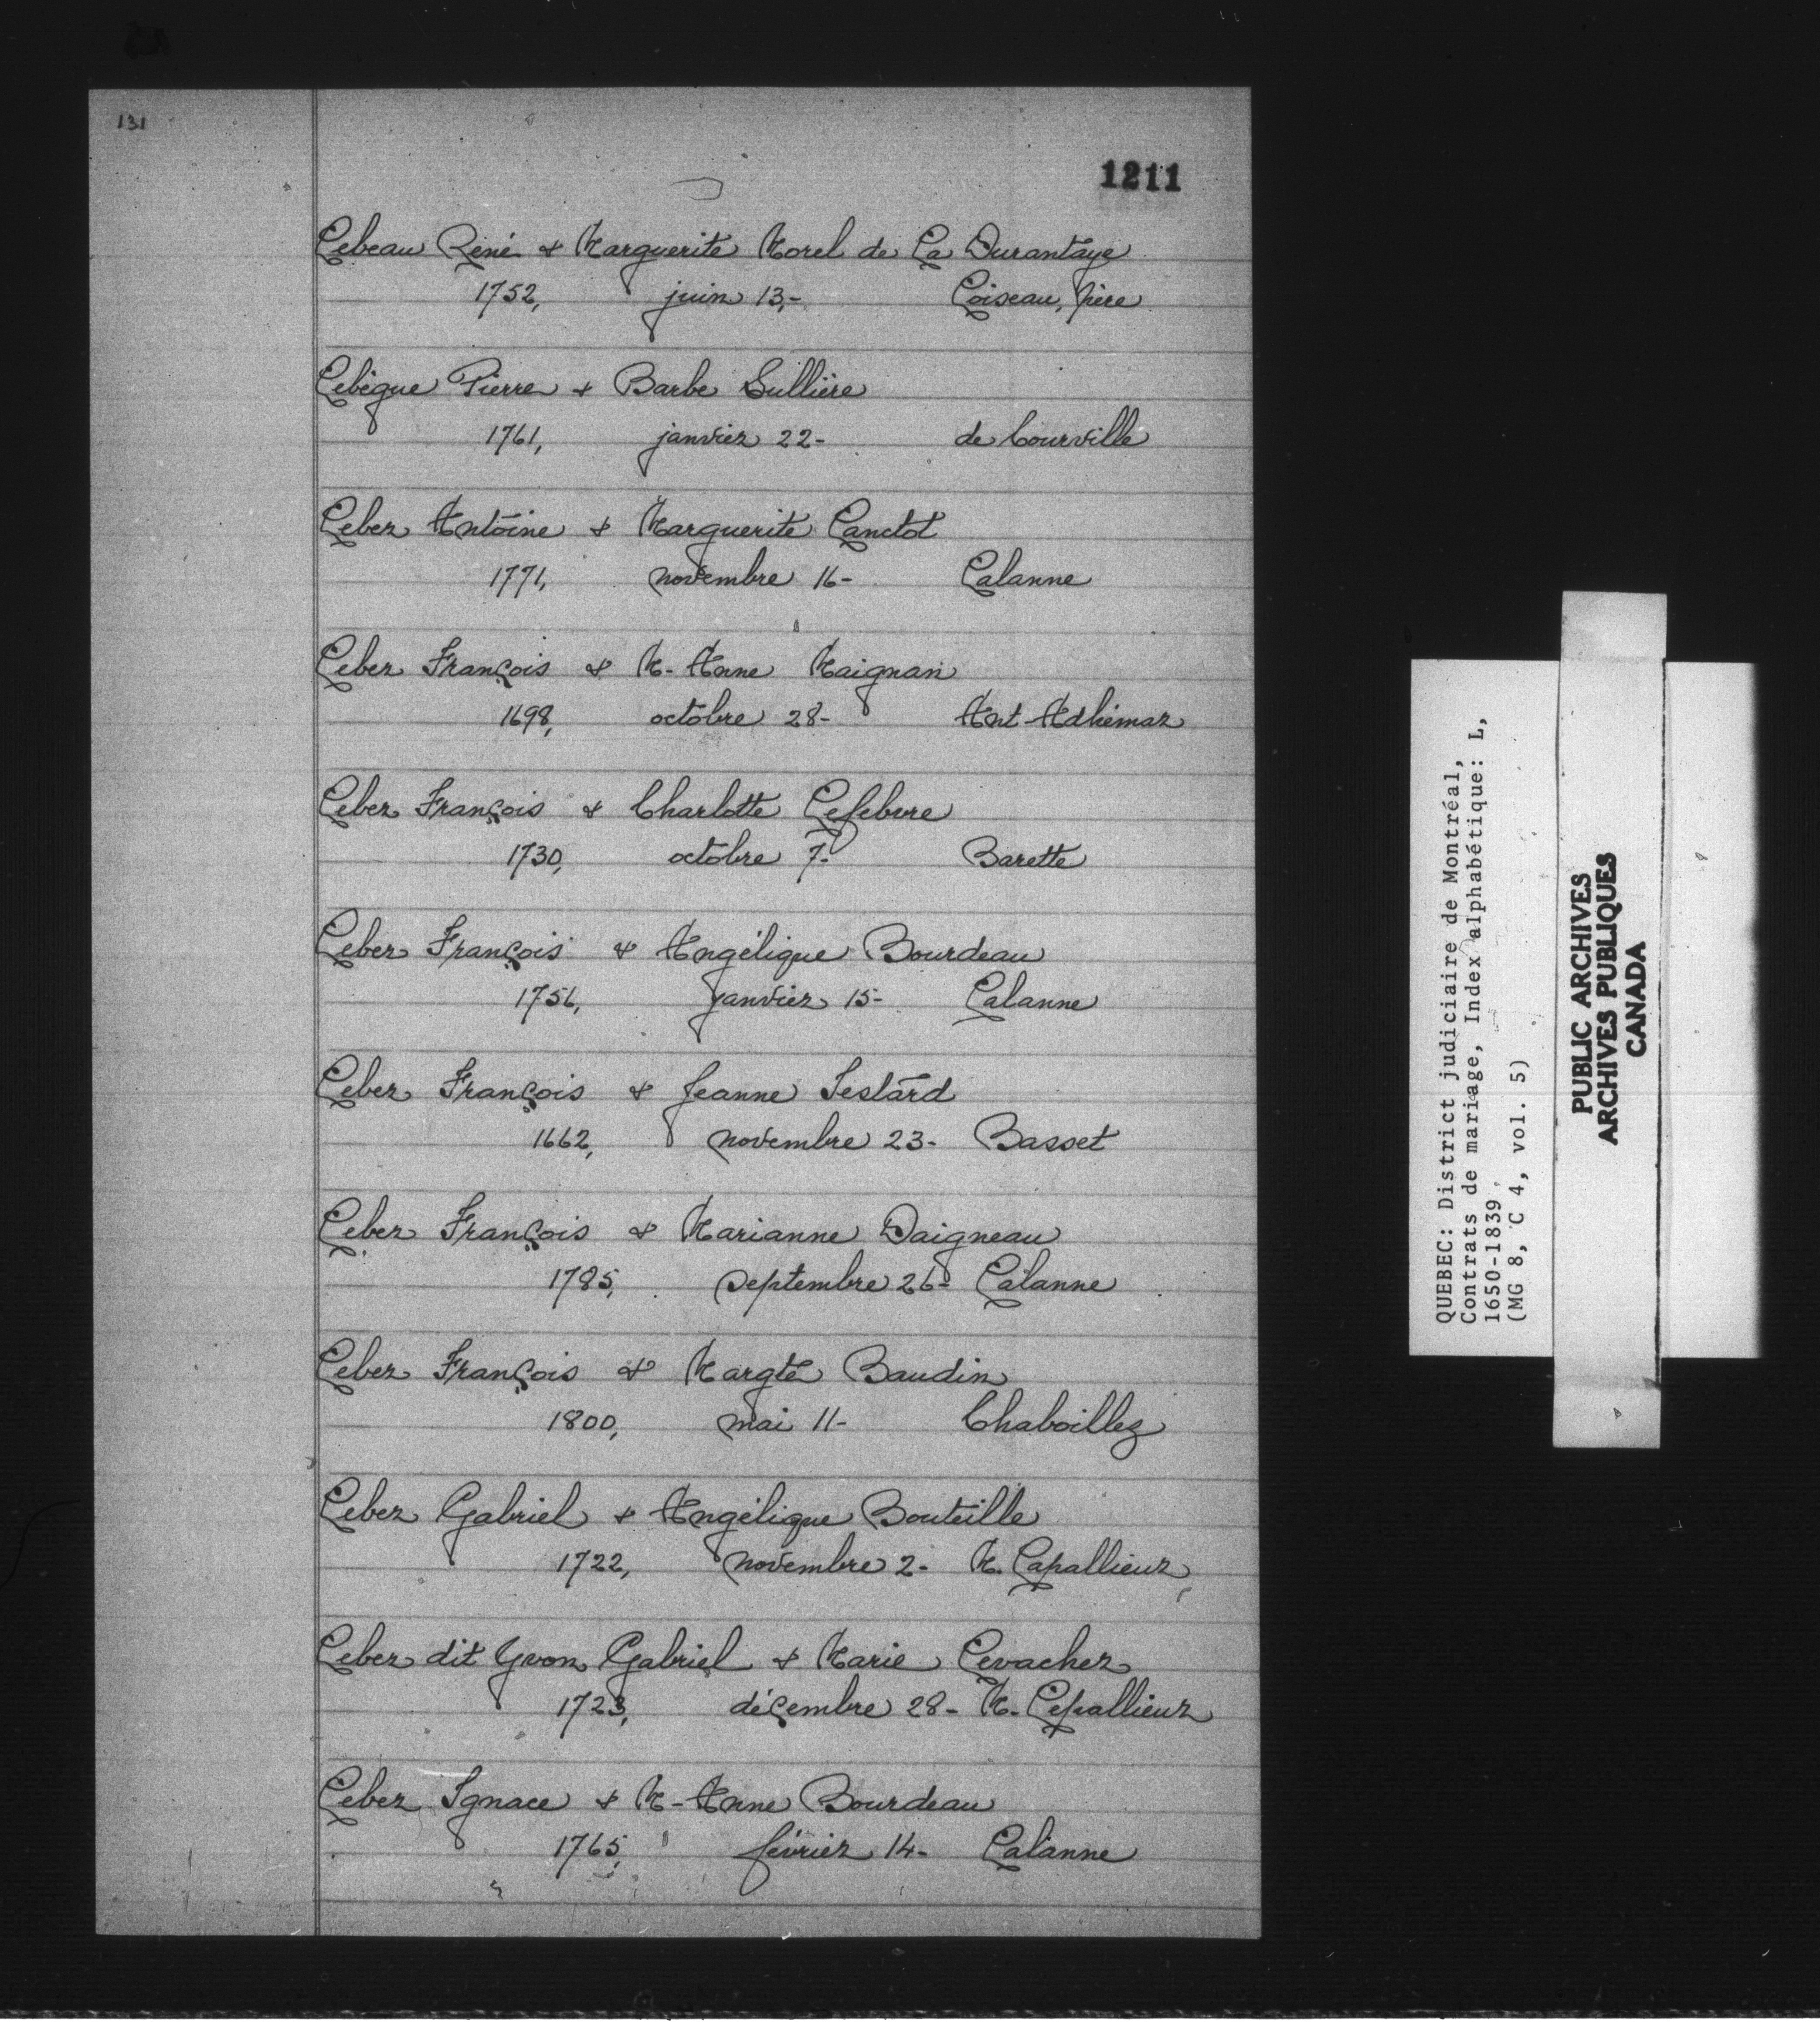 131
1211
Lebeau René & Marguerite Morel de La Durantaye
1752, juin 13,- Loiseau, père
Lebègue Pierre & Barbe Sullière
1761, janvier 22- de Courville
Leber Antoine & Marguerite Lanctot
1771, novembre 16- Lalanne
Leber François & M-Anne Maignan
1698, octobre 28- Ant-Adhémar
Leber François & Charlotte Lefebvre
1730, octobre 7- Barette
Leber François & Angélique Bourdeau
1756, janvier 15- Lalanne
Leber François & Jeanne Testard
1662, novembre 23- Basset
Leber François & Marianne Daigneau
1785, septembre 26- Lalanne
Leber François & Margte Baudin
1800, mai 11- Chaboillez
Leber Gabriel & Angélique Bouteille
1722, novembre 2- M. Lapallieur
Leber dit Yvon Gabriel & Marie Levacher
1723, décembre 28- M. Lepallieur
Leber Ignace & M-Anne Bourdeau
1765, février 14- Lalanne
QUEBEC: District judiciaire de Montréal,
Contrats de mariage, Index alphabétique: L,
1650-1839
(MG 8, C 4, vol. 5)
PUBLIC ARCHIVES
ARCHIVES PUBLIQUES
CANADA